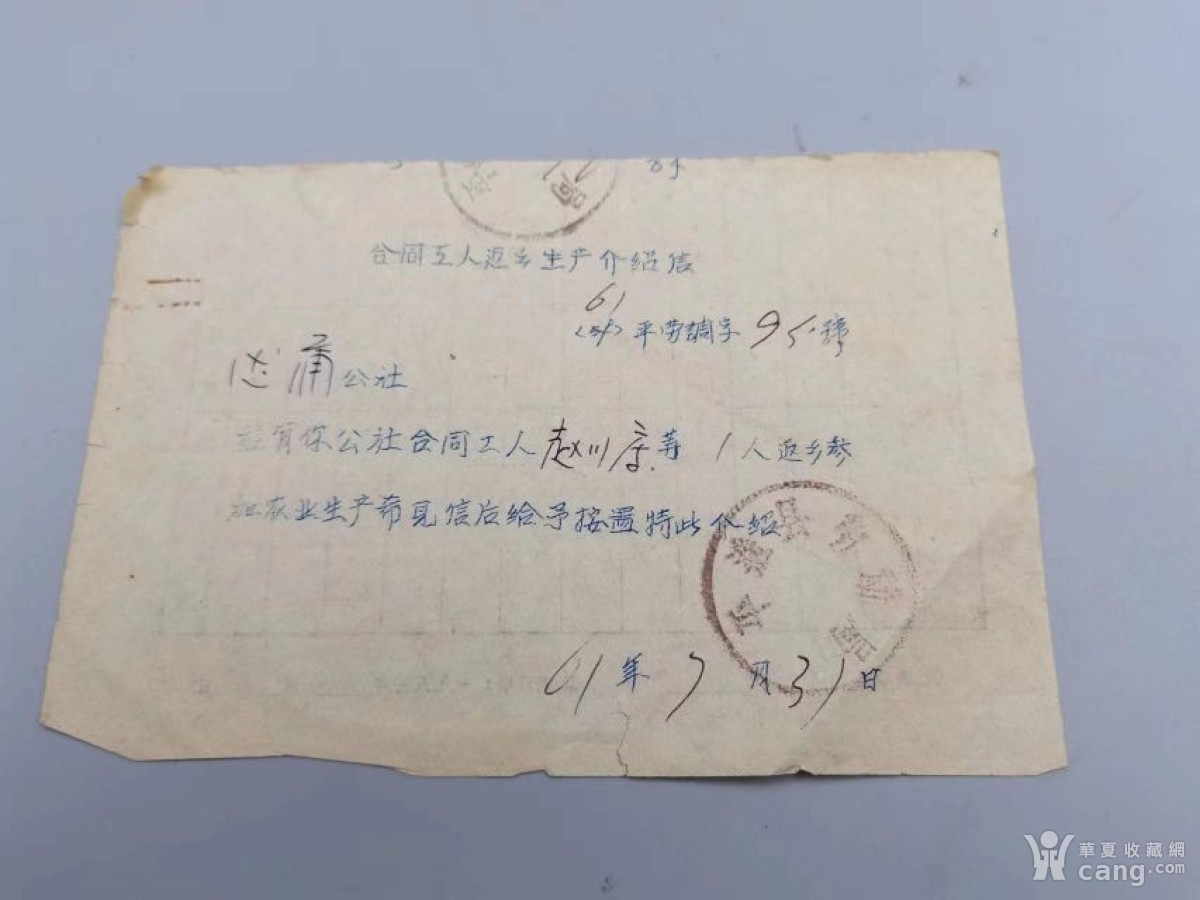 号
合同工人返乡生产介绍信
61
平劳调字 95号
公社
兹有你公社合同工人赵川彦等 1人返乡参
加农业生产希见信后给予按置特此介绍
平遥县劳动局
61年7月31日
華夏收藏網
cang.com